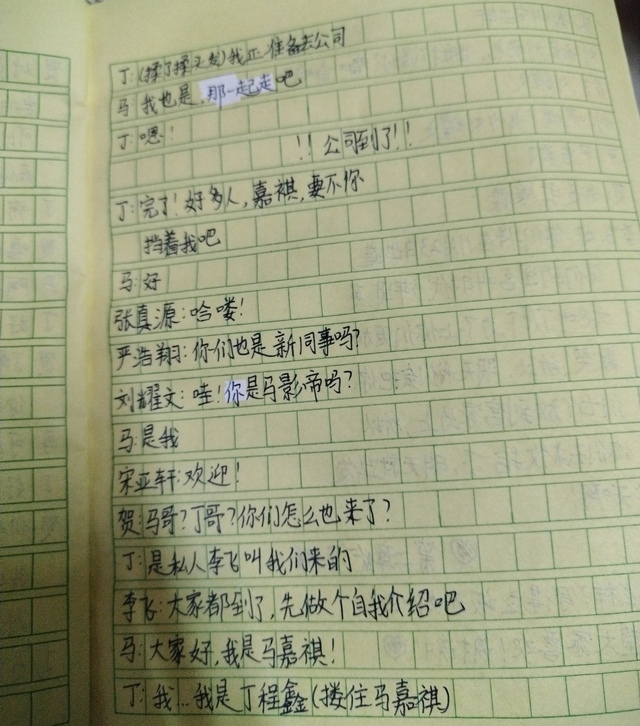 丁:(揉了揉文尧)我正准备去公司
马:我也是,那一起走吧
丁:嗯!
!!公司到了!!
丁:完了!好多人,嘉祺,要不你
挡着我吧
马:好
张真源:哈喽!
严浩翔:你们也是新同事吗?
刘耀文:哇!你是马影帝吗?
马:是我
宋亚轩:欢迎!
贺:马哥?丁哥?你们怎么也来了?
丁:是私人李飞叫我们来的
李飞:大家都到了,先做个自我介绍吧
马:大家好,我是马嘉祺!
丁:我...我是丁程鑫(搂住马嘉祺)